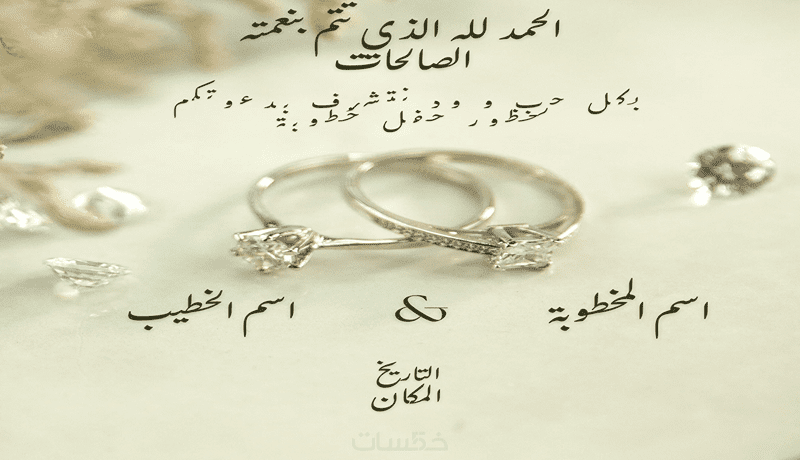 الحمد لله الذي تتم بنعمته
الصالحات
بكل حب و ود نتشرف بدعوتكم
لحظور حفل خطوبة
اسم المخطوبة & اسم الخطيب
التاريخ
المكان
خمسات